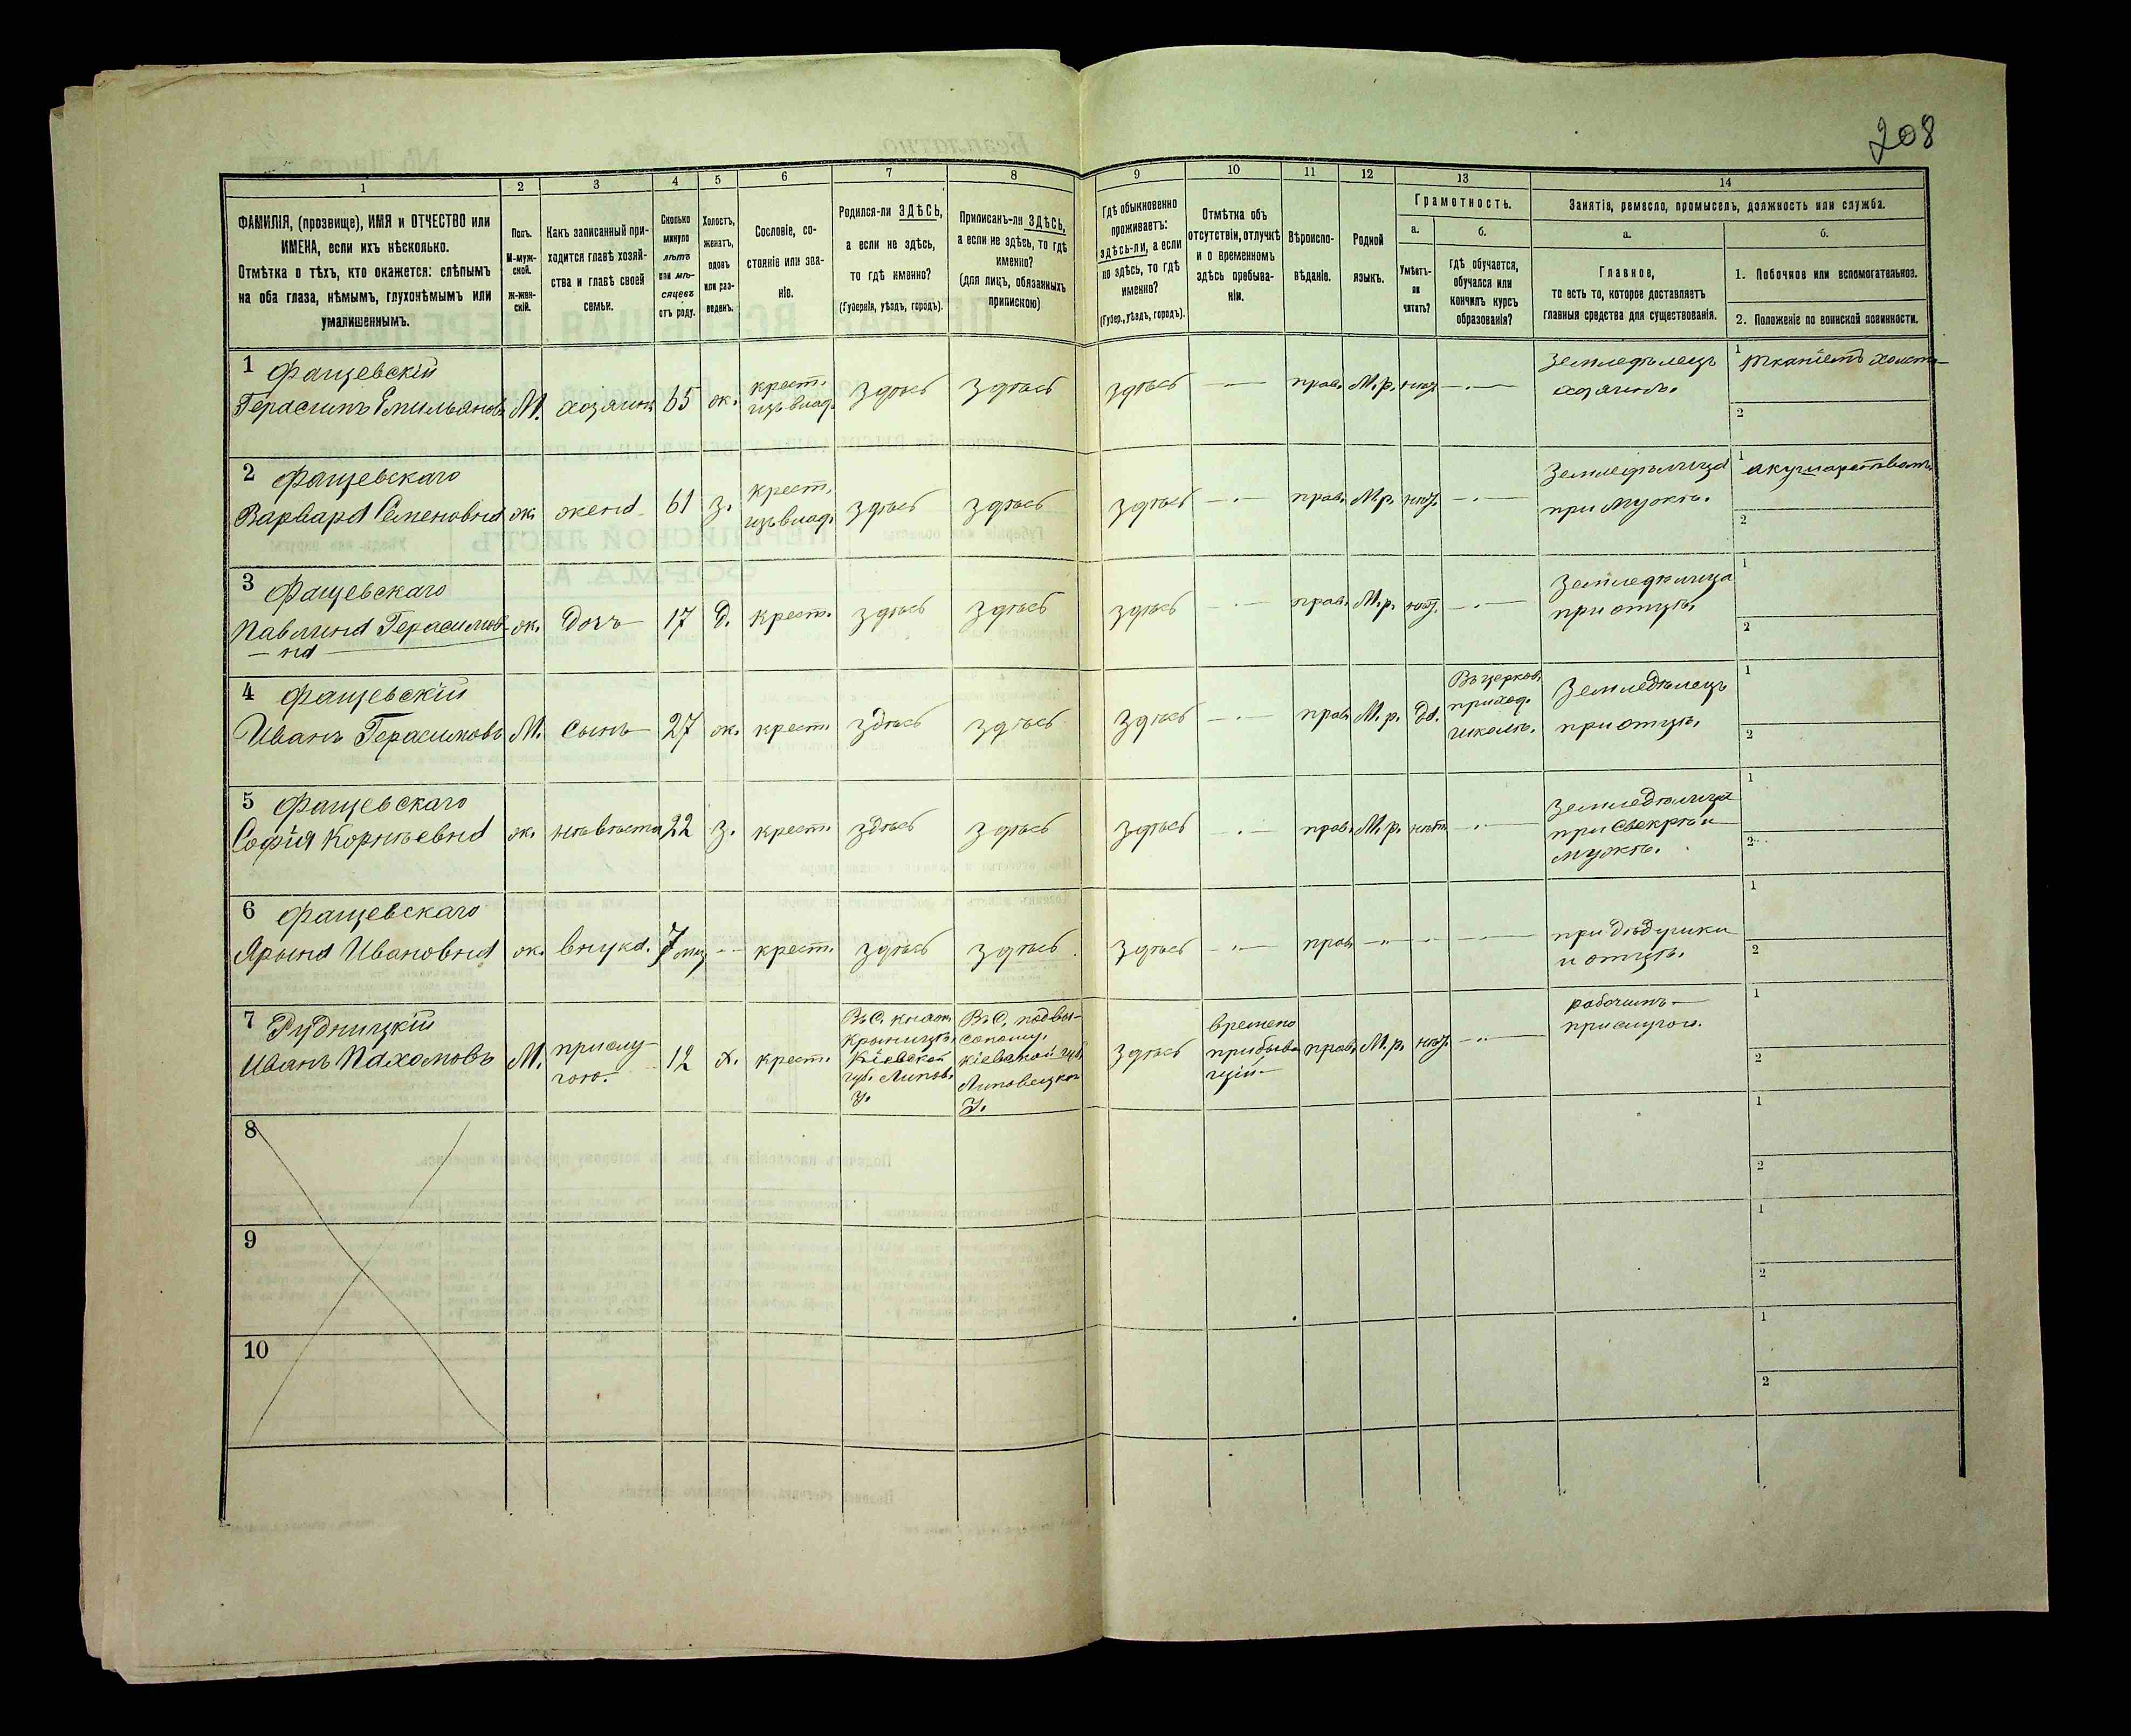 208
1
2
3
4
5
6
7
8
9
10
11
12
13
14
ФАМИЛІЯ, (прозвище), ИМЯ и ОТЧЕСТВО или
ИМЕНА, если ихъ нѣсколько.
Отмѣтка о тѣхъ, кто окажется: слѣпымъ
на оба глаза, нѣмымъ, глухонѣмымъ или
умалишеннымъ.
Полъ.
М-муж-
ской.
ж-жен-
скій.
Какъ записанный при-
ходится главѣ хозяй-
ства и главѣ своей
семьи.
Сколько
минуло
лѣтъ
или мѣ-
сяцевъ
отъ роду.
Холостъ,
женатъ,
вдовъ
или раз-
веденъ.
Сословіе, со-
стояніе или зва-
ніе.
Родился-ли ЗДѢСЬ,
а если не здѣсь,
то гдѣ именно?
(Губернія, уѣздъ, городъ).
Приписанъ-ли ЗДѢСЬ,
а если не здѣсь, то гдѣ
именно?
(для лицъ, обязанныхъ
припискою)
Гдѣ обыкновенно
проживаетъ:
здѣсь-ли, а если
не здѣсь, то гдѣ
именно?
(Губер., уѣздъ, городъ).
Отмѣтка объ
отсутствіи, отлучкѣ
и о временномъ
здѣсь пребыва-
ніи.
Вѣроиспо-
вѣданіе.
Родной
языкъ.
Грамотность.
а.
Умѣетъ-
ли
читать?
б.
гдѣ обучается,
обучался или
кончилъ курсъ
образованія?
Занятіе, ремесло, промыселъ, должность или служба.
а.
Главное,
то есть то, которое доставляетъ
главныя средства для существованія.
б.
1. Побочное или вспомогательное.
2. Положеніе по воинской повинности.
1 Фащевскій
Герасимъ Емильяновъ М. хозяинъ 65 ж. крест. изъ влад. здѣсь здѣсь здѣсь —·— прав. М.р. нѣт. —·— Земледѣлецъ
хозяинъ.
1 тканіемъ холста
2
2 Фащевскаго
Варвара Семеновна ж. жена 61 з. крест. изъ влад. здѣсь здѣсь здѣсь —·— прав. М.р. нѣт. —·— Земледѣлица
при мужѣ.
1 акушарствомъ
2
3 Фащевскаго
Павлина Герасимов-
на ж. дочь 17 д. крест. здѣсь здѣсь здѣсь —·— прав. М.р. нѣт. —·— Земледѣлица
при отцѣ.
1
2
4 Фащевскій
Иванъ Герасимовъ М. сынъ 27 ж. крест. здѣсь здѣсь здѣсь —·— прав. М.р. да.
Въ церков.
приход.
школѣ.
Земледѣлецъ
при отцѣ.
1
2
5 Фащевскаго
Софія Корнѣевна ж. невѣста 22 з. крест. здѣсь здѣсь здѣсь —·— прав. М.р. нѣт. —·— Земледѣлица
при свекрѣ и
мужѣ.
1
2
6 Фащевскаго
Ярына Ивановна ж. внука. 7 мц — крест. здѣсь здѣсь здѣсь —·— прав. —·— —·— при дѣдушки
и отцѣ.
1
2
7 Рудницкій
Иванъ Пахомовъ М. прислу-
гою. 12 х. крест.
Въ С.
Крыницѣ,
Кіевской
губ. Липов.
у.
Въ С. подвы-
сокому,
кіевской губ.
Липовецкаго
У.
здѣсь
времено
прибыва
щій
прав. М.р. нѣт. —·—
рабочимъ
прислугой.
1
2
8
1
2
9
1
2
10
1
2